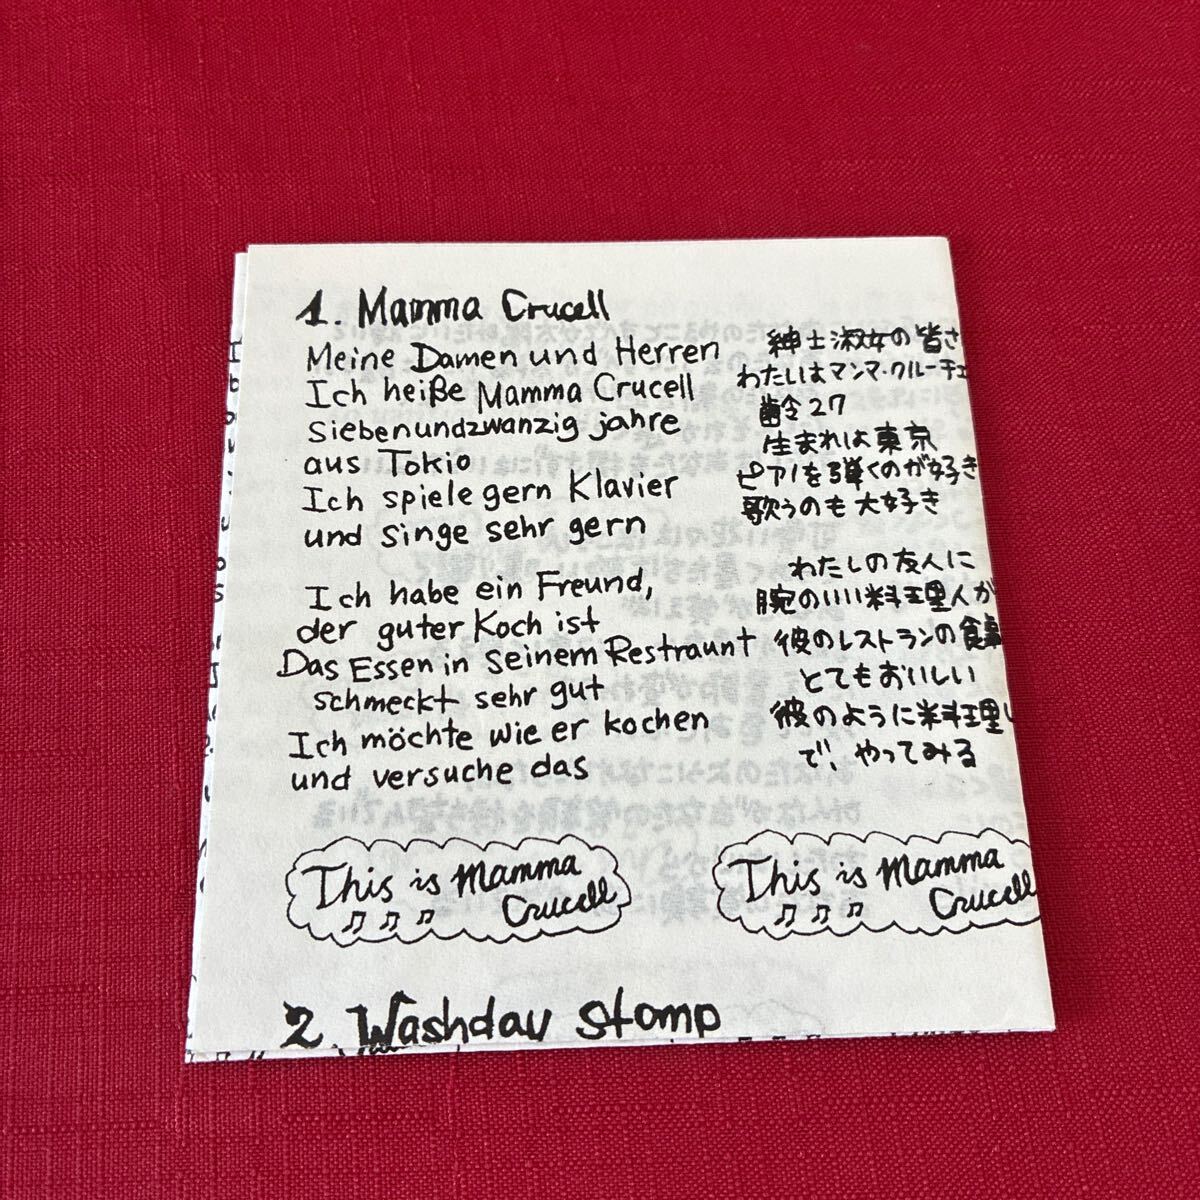 1. Mamma Crucell
Meine Damen und Herren
Ich heiße Mamma Crucell
siebenundzwanzig jahre
aus Tokio
Ich spiele gern Klavier
und singe sehr gern
Ich habe ein Freund,
der guter Koch ist
Das Essen in seinem Restraunt
schmeckt sehr gut
Ich möchte wie er kochen
und versuche das
紳士淑女の皆さ
わたしはマンマ・クルーチェ
齢27
生まれは東京
ピアノを弾くのが好き
歌うのも大好き
わたしの友人に
腕のいい料理人が
彼のレストランの食事
とてもおいしい
彼のように料理し
で、やってみる
This is Mamma
Crucell
This is Mamma
Crucell
2 Washday Stomp